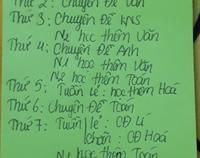 Thứ 2: Chuyên Đề Văn
Thứ 3: Chuyên Đề KNS
N2 học thêm Văn
Thứ 4: Chuyên Đề Anh
N1 học thêm Văn
N2 học thêm Toán
Thứ 5: Tuần Lẻ: học thêm Hoá
Thứ 6: Chuyên Đề Toán
Thứ 7: Tuần lẻ: CĐ Lí
chẵn: CĐ Hoá
N1 học thêm Toán